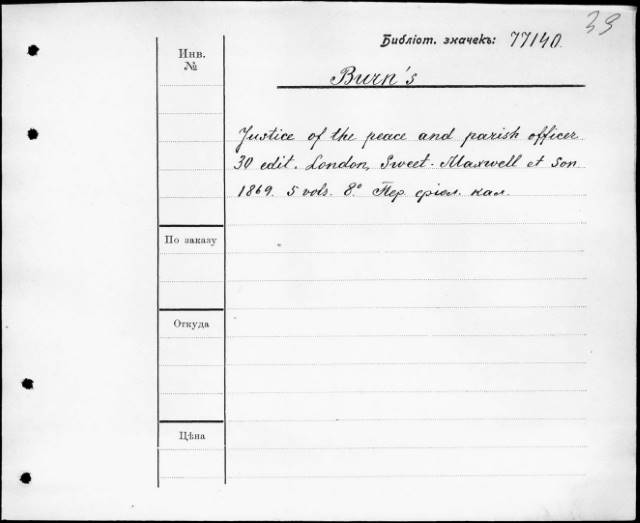 39
Библіот. значекъ: 77140.
Инв.
№
Burn's
Justice of the peace and parish officer.
30 edit. London, Sweet. Maxwell et Son
1869. 5 vols. 8.° Пер. фіол. кал.
По заказу
Откуда
Цѣна